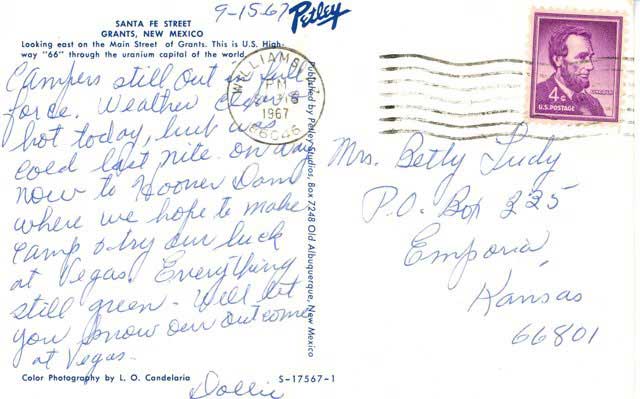 9-1567
Petley
SANTA FE STREET
GRANTS, NEW MEXICO
Looking east on the Main Street of Grants. This is U.S. High-
way "66" through the uranium capital of the world.
Campers still out in full
force. Weather clear &
hot today, but was
cold last nite. on day
now to Hoover Dam
where we hope to make
camp & try our luck
at Vegas. Everything
still green - Will let
you know our outcome
at Vegas.
Dollie
Color Photography by L. O. Candelaria
S-17567-1
Published by Petley Studios, Box 7248 Old Albuquerque, New Mexico
WILLIAMS
PM
1967
86046
4¢
U.S. POSTAGE
Mrs. Betty Ludy
P.O. Box 225
Emporia,
Kansas
66801